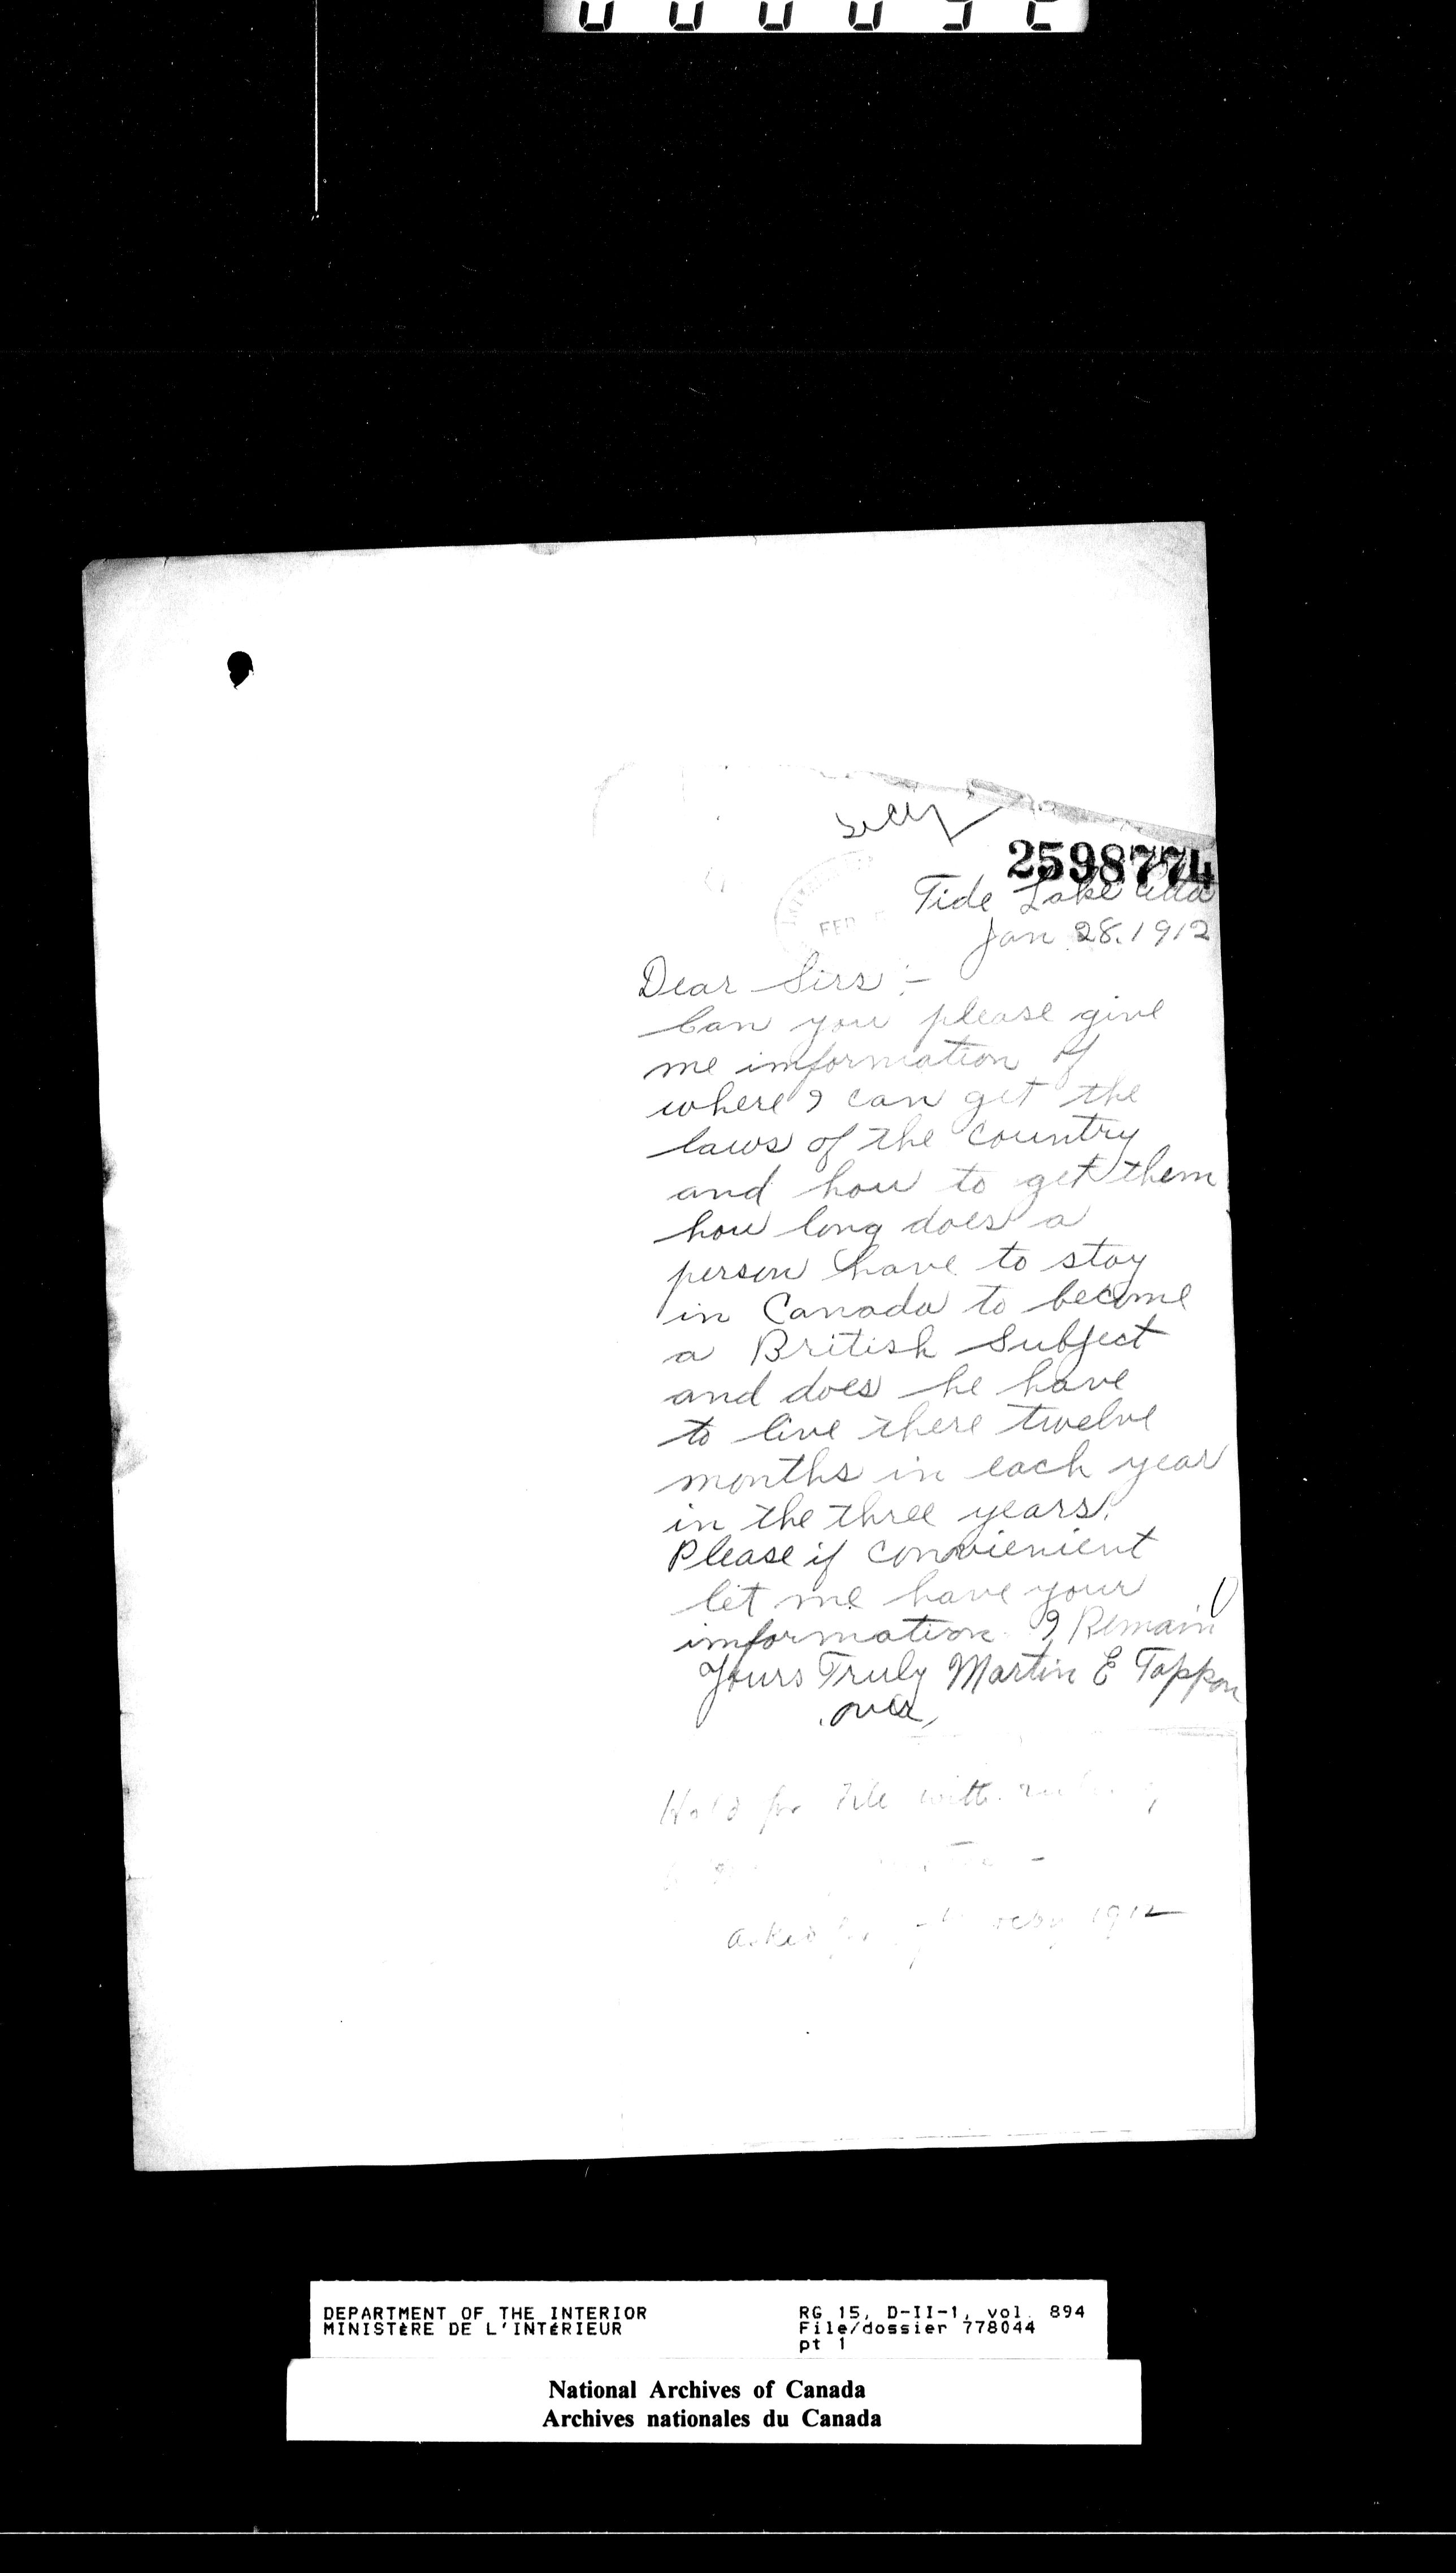 Secy
2598774
Tide Lake Alta
FEB
Jan 28. 1912
Dear Sirs :-
Can you please give
me imformation of
where I can get the
laws of the country
and how to get them
how long does a
person have to stay
in Canada to become
a British Subject
and does he have
to live there twelve
months in each year
in the three years.
Please if convienient
let me have your
imformation. I Remain
Yours Truly Martin E Tappon
over,
Hold for file with
1912
DEPARTMENT OF THE INTERIOR
MINISTÈRE DE L'INTÉRIEUR
RG 15, D-II-1, vol. 894
File/dossier 778044
pt 1
National Archives of Canada
Archives nationales du Canada